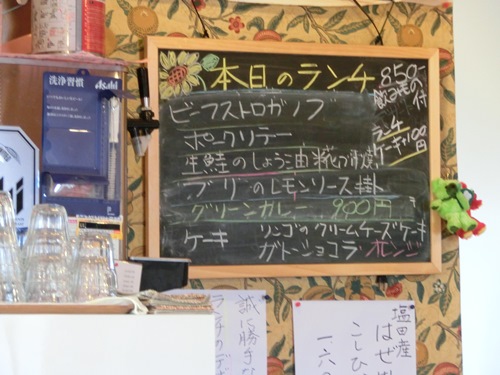 本日のランチ
850-
飲み物付
ビーフストロガノフ
ポークソテー
ランチ
ケーキ付100円
生鮭のしょう油糀づけ焼
ブリのレモンソース掛
グリーンカレー 900円
ケーキ リンゴのクリームチーズケーキ
ガトーショコラ オレンジ
洗浄習慣
Asahi
誠に勝手な
ランチの
塩田産
はぜ
こしひ
一、六